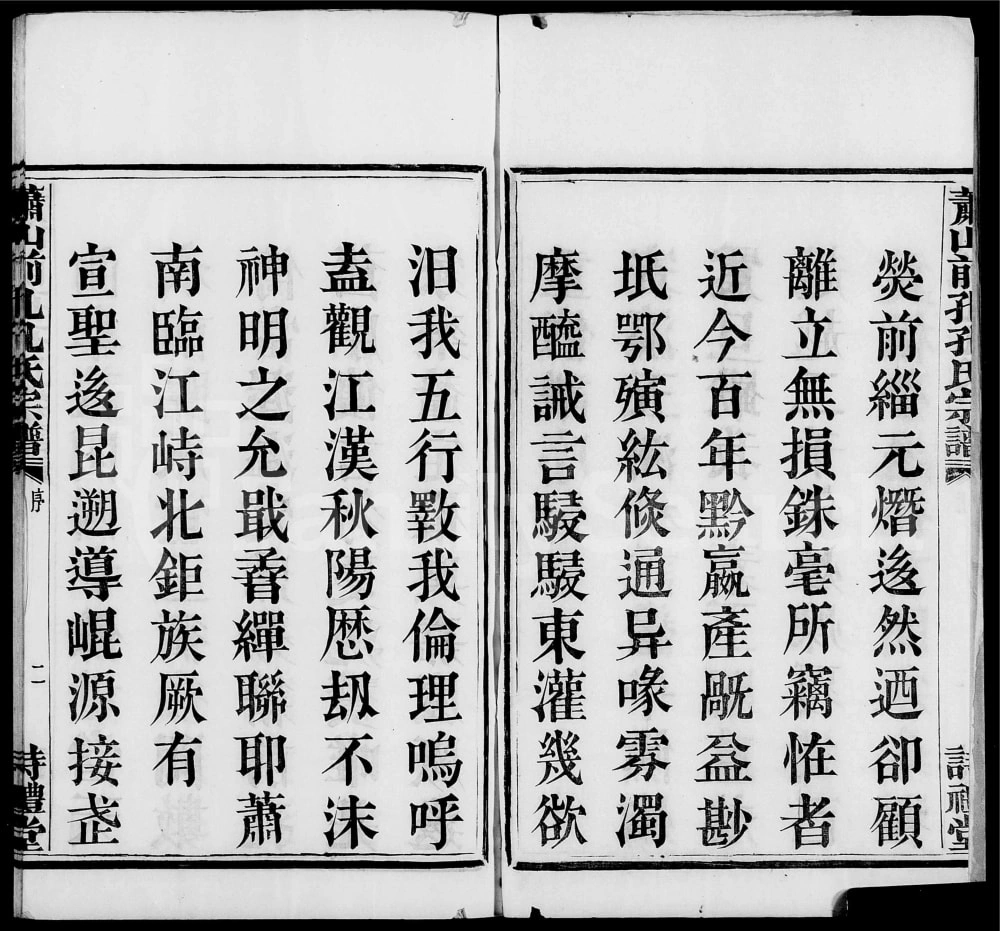 蕭山前孔孔氏宗譜
詩禮堂
熒前緇元熸逡然迺卻顧
離立無損銖毫所竊恠者
近今百年黔嬴產厩益尠
坻鄂殯紘倏通异喙雰濁
摩醯誡言駸駸東灌幾欲
汨我五行斁我倫理嗚呼
盍觀江漢秋陽厯刼不沬
神明之允戢孴繟聯耶蕭
南臨江峙北鉅族厥有
宣聖逡昆遡導崐源接武
蕭山前孔孔氏宗譜
序
二
詩禮堂